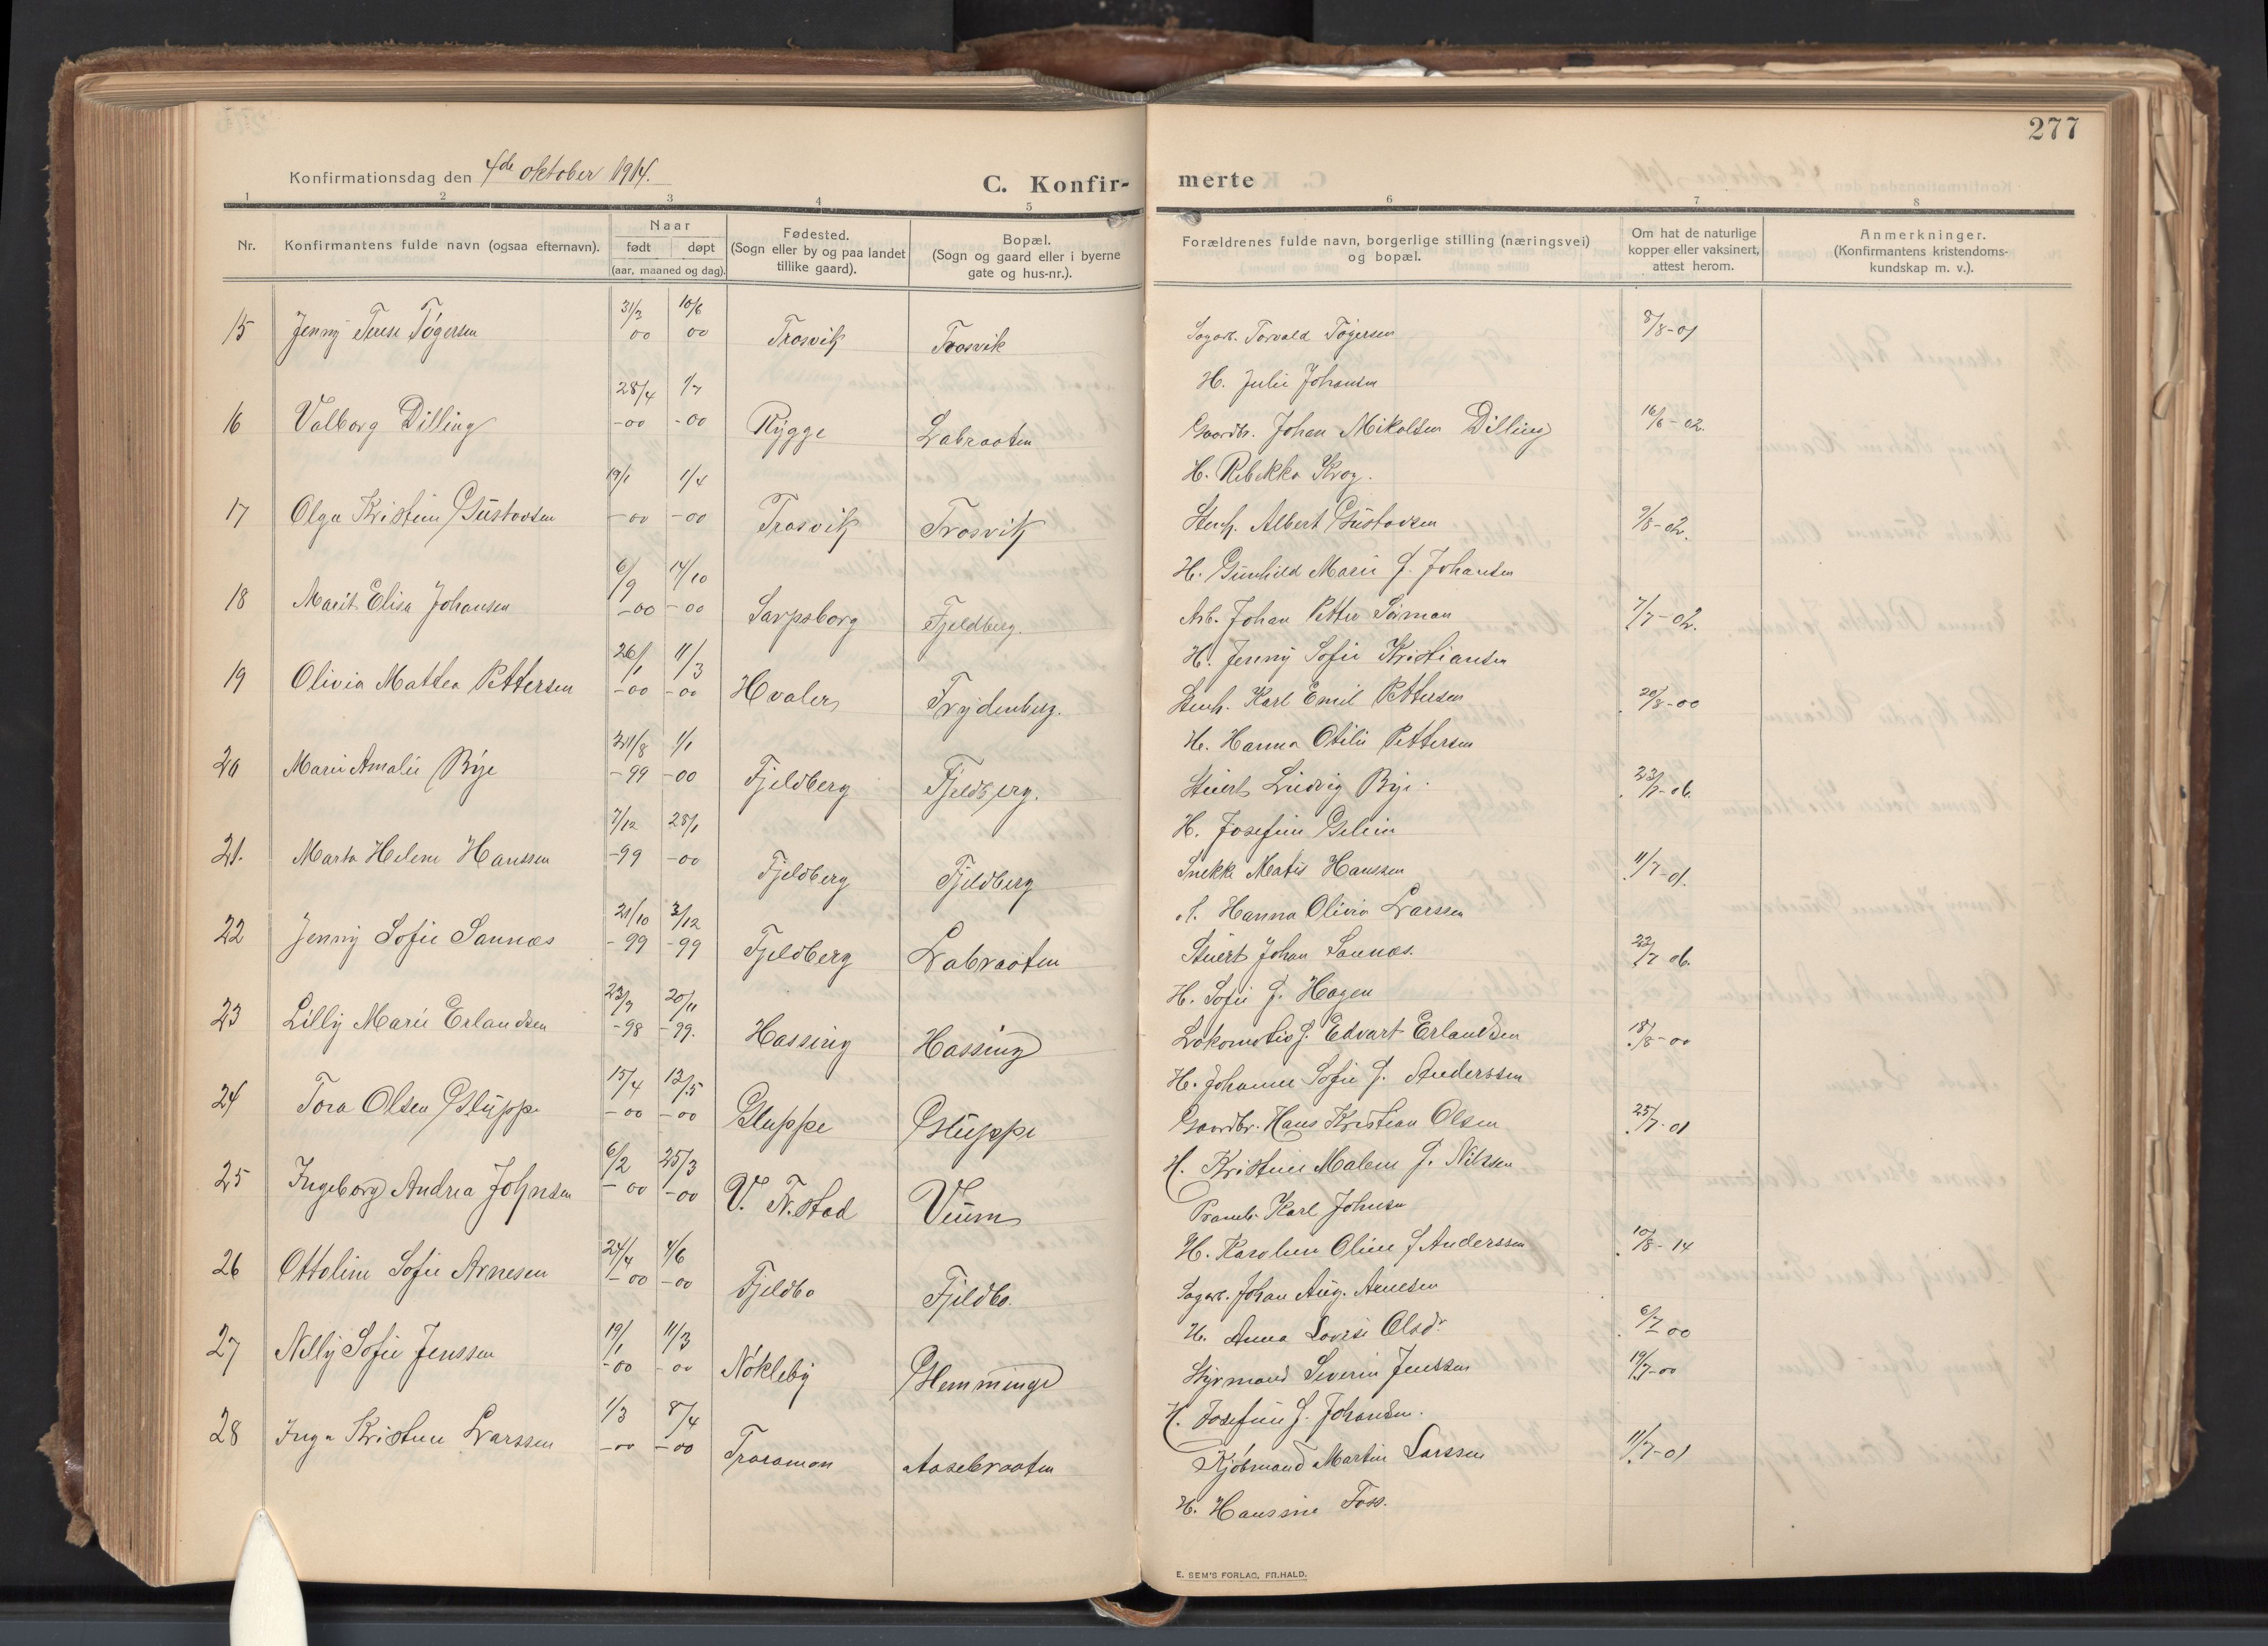 277
Konfirmationsdag den 4de oktober 1914.
C. Konfir- merte
1 2 3 4 5 6 7 8
Nr.
Konfirmantens fulde navn (ogsaa efternavn).
Naar
født døpt
(aar, maaned og dag).
Fødested.
(Sogn eller by og paa landet
tillike gaard).
Bopæl.
(Sogn og gaard eller i byerne
gate og hus-nr.).
Forældrenes fulde navn, borgerlige stilling (næringsvei)
og bopæl.
Om hat de naturlige
kopper eller vaksinert,
attest herom.
Anmerkninger.
(Konfirmantens kristendoms-
kundskap m. v.).
15 Jenny Terese Tøgersen 31/3 00 10/6 00 Trosvik Trosvik Sagarb. Torvald Tøgersen 8/8-01
H. Julie Johansen
16 Valborg Dilling 28/4 -00 1/7 -00 Rygge Labraaten Gaardbr. Johan Mikalsen Dilling 16/6-02.
H. Rebekka Krog.
17 Olga Kristine Gustavsen 19/1 -00 1/4 -00 Trosvik Trosvik Stenh. Albert Gustavsen 9/8-02.
H. Gunhild Marie f. Johansen
18 Marit Elisa Johansen 6/9 -00 14/10 -00 Sarpsborg Fjeldberg. Arb. Johan Petter Sørman 7/7-02.
H. Jenny Sofie Kristiansen
19 Olivia Mattea Pettersen 26/1 -00 11/3 -00 Hvaler Frydenberg. Stenh. Karl Emil Pettersen 20/8-00
H. Hanna Otilie Pettersen
20 Marie Amalie Bye 21/8 -99 1/1 -00 Fjeldberg Fjeldberg. Stuert Ludvig Bye. 23/7-06.
H. Josefine Gelein
21. Marta Helene Hanssen 7/12 -99 28/1 -00 Fjeldberg Fjeldberg Snekk Matis Hanssen 11/7-01.
H. Hanna Olivia Larssen
22 Jenny Sofie Sannæs 21/10 -99 3/12 -99 Fjeldberg Labraaten Stuert Johan Sannæs. 23/7 06.
H. Sofie f. Hagen
23 Lilly Marie Erlandsen 23/7 -98 20/11 -99. Hassing Hassing Lokomotivf. Edvart Erlandsen 18/8-00
H. Johanne Sofie f. Anderssen
24 Tora Olsen Gluppe 15/4 -00 13/5 -00 Gluppe Gluppe Gaardbr. Hans Kristian Olsen 25/7-01
H. Kristine Malene f. Nilssen
25 Ingeborg Andrea Johnsen 6/2 -00 25/3 -00 V. Fr.stad Veum Pramb. Karl Johnsen
H. Karoline Oline f Anderssen 10/8-14
26 Ottoline Sofie Arnesen 24/4 -00 4/6 -00 Fjeldbo Fjeldbo. Sagarb. Johan Aug. Arnesen
H. Anna Lovise Olsd. 6/7 00
27 Nelly Sofie Jenssen 19/1 -00 11/3 -00 Nøkleby Glemminge Styrmand Severin Jenssen 19/7-00
H. Josefine f. Johansen.
28 Inga Kristine Larssen 1/3 -00 8/4 -00 Traramon Aasebraaten Kjøbmand Martin Larssen 11/7-01
H. Hansine Foss.
E. SEM'S FORLAG, FR.HALD.